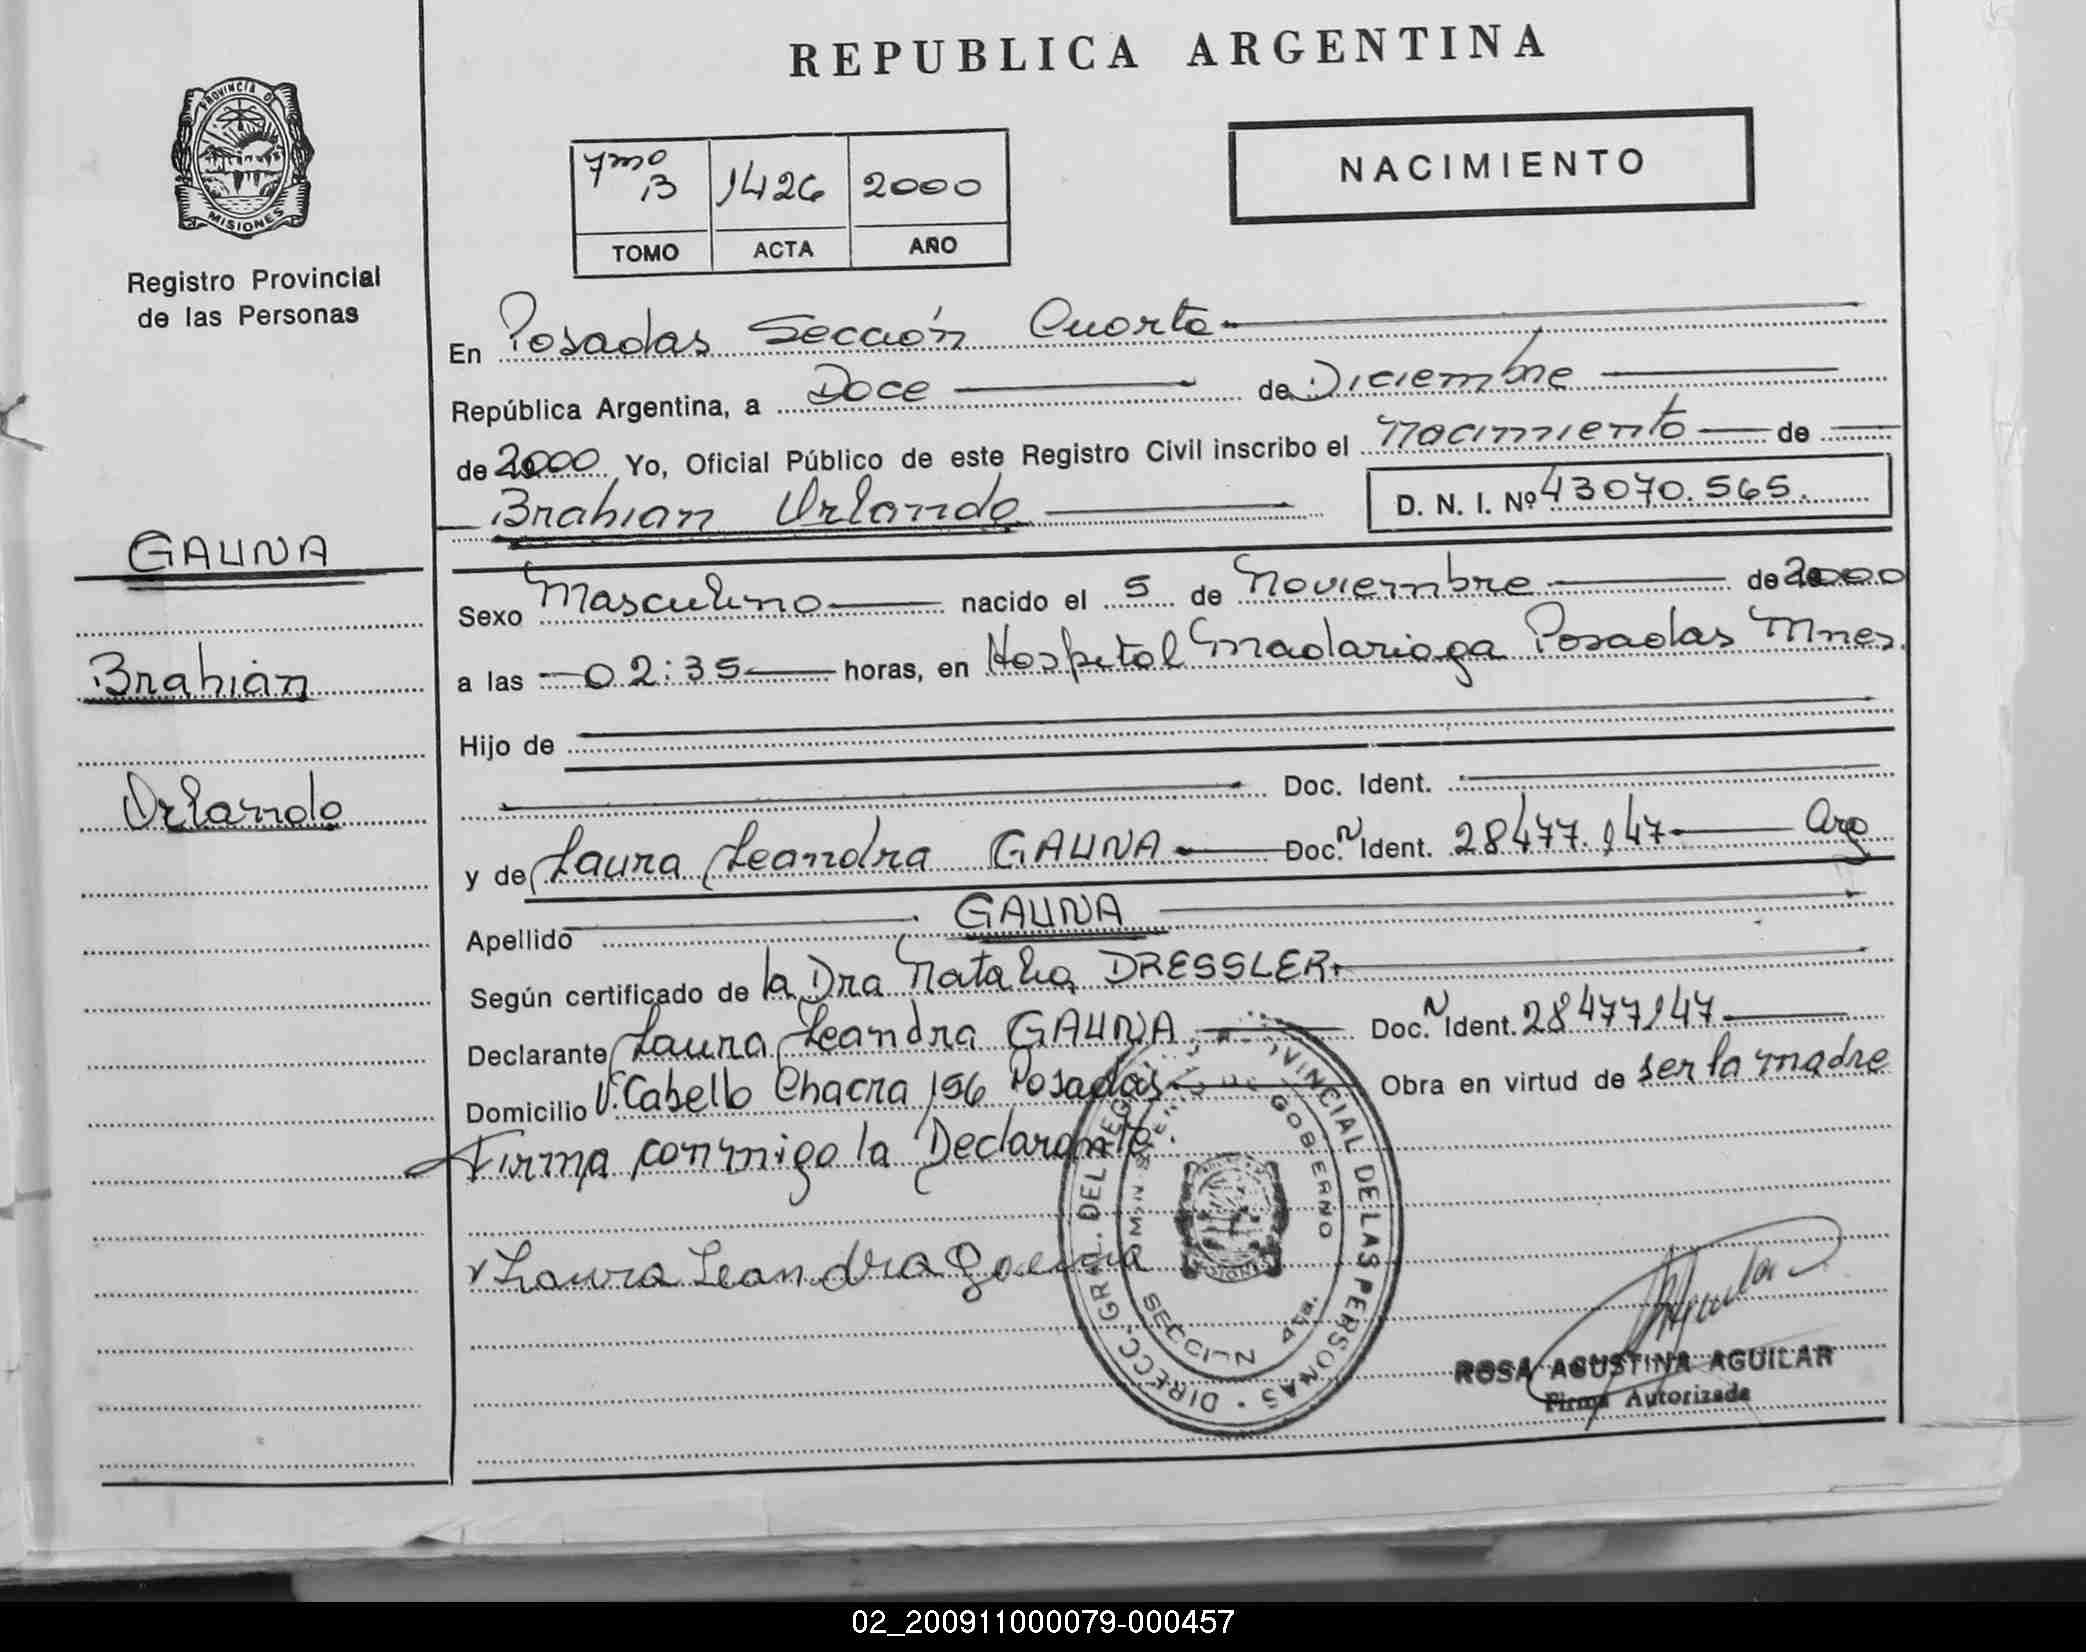 REPUBLICA ARGENTINA
PROVINCIA DE
MISIONES
Registro Provincial
de las Personas
NACIMIENTO
7mo B 1426 2000
TOMO ACTA AÑO
En Posadas Sección Cuarta
República Argentina, a Doce de Diciembre
de 2000 Yo, Oficial Público de este Registro Civil inscribo el Nacimiento de
Brahian Orlando D. N. I. Nº 43070.565.
GAUNA
Brahian
Orlando
Sexo Masculino nacido el 5 de Noviembre de 2000
a las 02:35 horas, en Hospital Madariaga Posadas Mnes.
Hijo de
Doc. Ident.
y de Laura Leandra GAUNA Doc. N Ident. 28477.147 Arg
Apellido GAUNA
Según certificado de la Dra Natalia DRESSLER
Declarante Laura Leandra GAUNA Doc. N Ident. 28477147
Domicilio V. Cabello Chacra 156 Posadas Obra en virtud de ser la madre
Firma conmigo la Declarante.
Laura Leandra Gauna
DIRECC. GRAL. DEL REG. PROVINCIAL DE LAS PERSONAS
GOBIERNO
SECCION 4ta.
ROSA AGUSTINA AGUILAR
Firma Autorizada
02_200911000079-000457